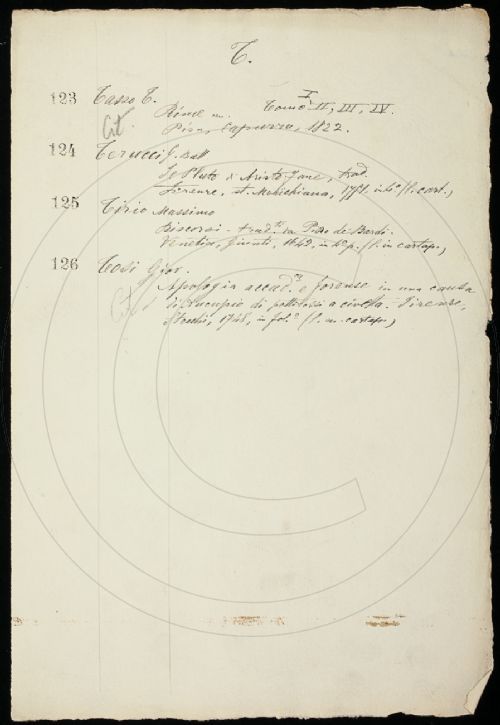 T.
123 Tasso T.
Cit
Rime Tomo I II, III, IV.
Pisa, Capurro, 1822.
124 Terucci G. Batt
Il Pluto d'Aristofane, trad.
Firenze, st. 1751. in 4º (l. cart.)
125 Tirio Massimo
Discorsi - trad. da Piero de Bardi.
Venetia, Giunti, 1642, in 4º p. (l. in cartap.)
126 Tosi Giov.
Cit
Apologia accad.ca e forense in una causa
di Aucupio di pettirossi a civetta. Firenze,
Stecchi, 1748, in fol.º (l. in cartap.)